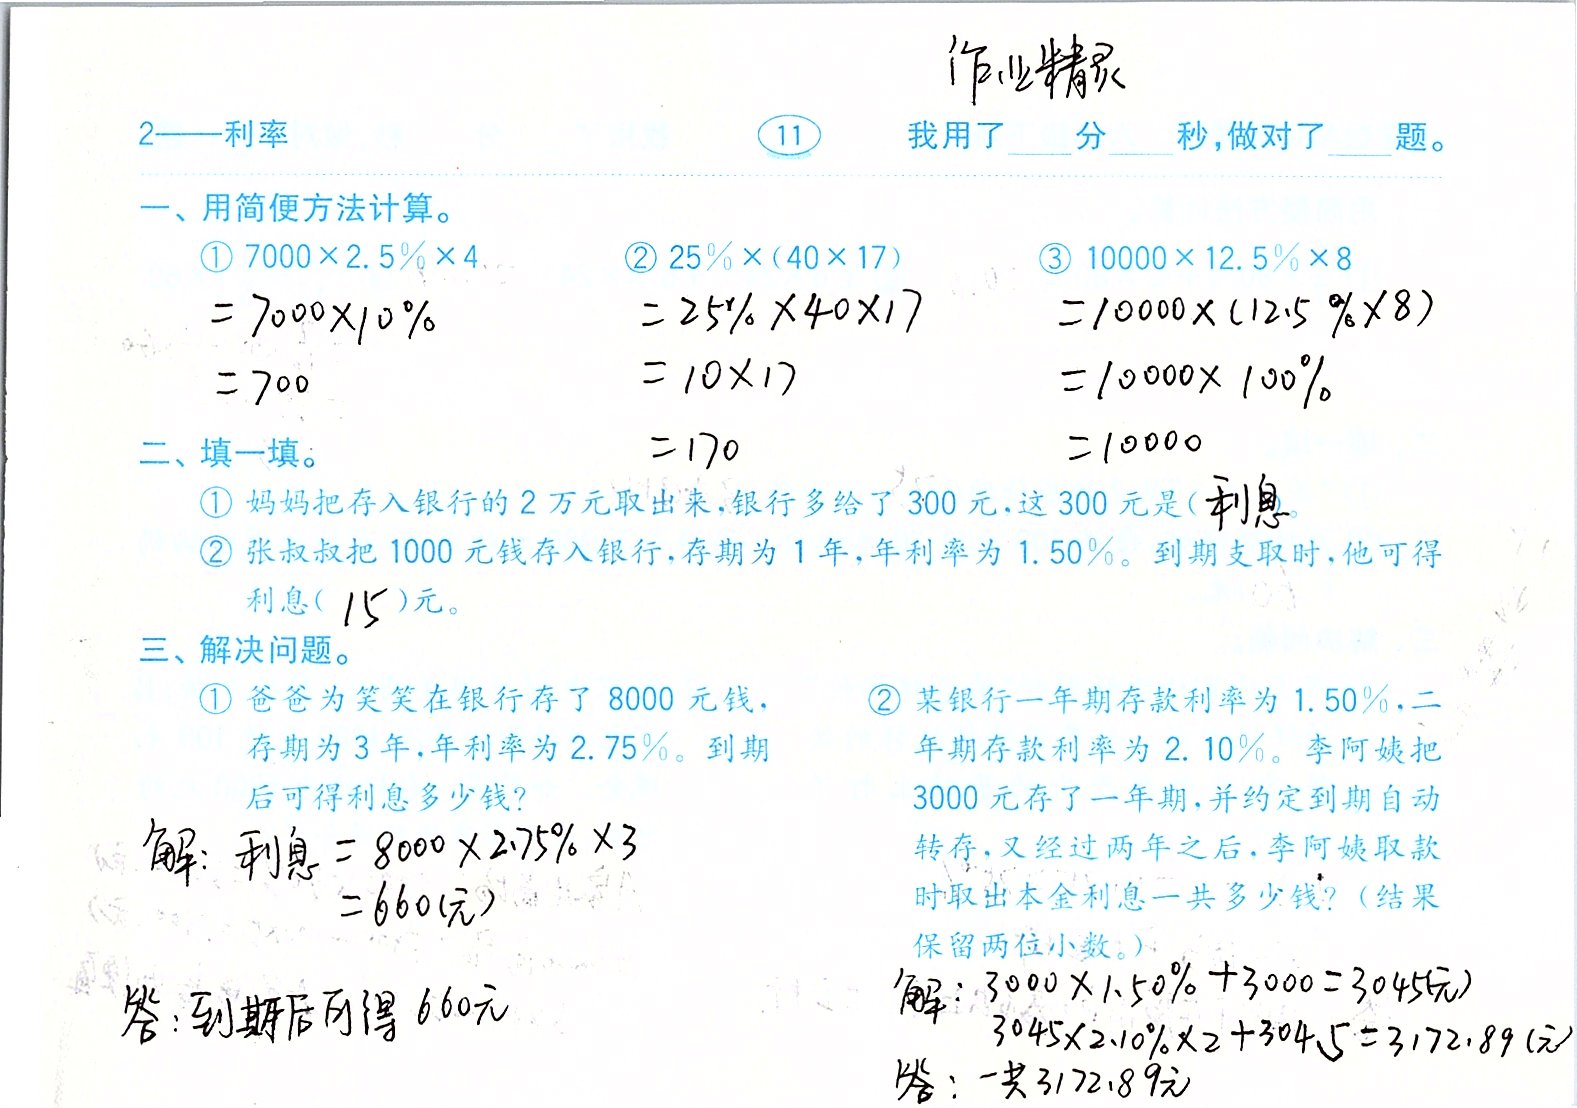 作业精灵
2——利率 11 我用了____分____秒,做对了____题。
一、用简便方法计算。
① 7000×2.5%×4 ② 25%×(40×17) ③ 10000×12.5%×8
=7000×10% =25%×40×17 =10000×(12.5%×8)
=700 =10×17 =10000×100%
=170 =10000
二、填一填。
① 妈妈把存入银行的2万元取出来,银行多给了300元,这300元是(利息)。
② 张叔叔把1000元钱存入银行,存期为1年,年利率为1.50%。到期支取时,他可得
利息(15)元。
三、解决问题。
① 爸爸为笑笑在银行存了8000元钱,
存期为3年,年利率为2.75%。到期
后可得利息多少钱?
解:利息=8000×2.75%×3
=660(元)
答:到期后可得660元
② 某银行一年期存款利率为1.50%,二
年期存款利率为2.10%。李阿姨把
3000元存了一年期,并约定到期自动
转存,又经过两年之后,李阿姨取款
时取出本金利息一共多少钱?(结果
保留两位小数。)
解:3000×1.50%+3000=3045(元)
3045×2.10%×2+3045=3172.89(元)
答:一共3172.89元